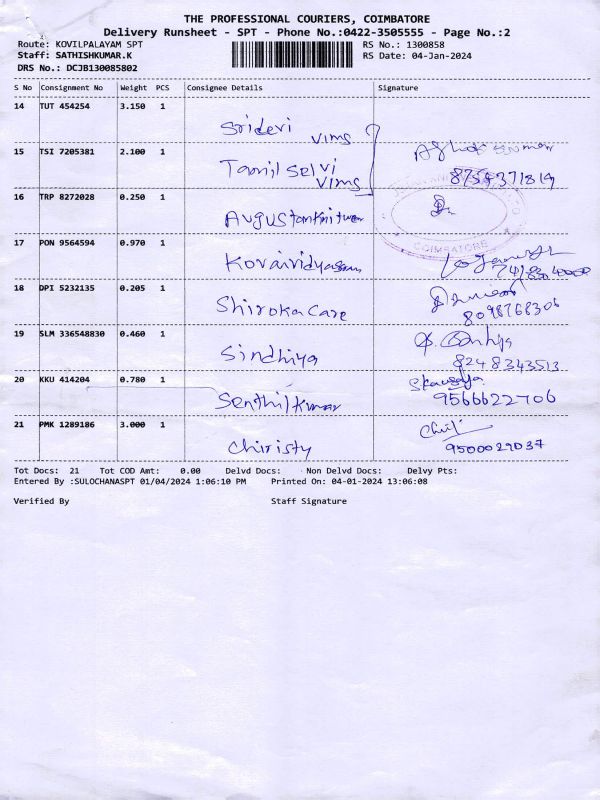 THE PROFESSIONAL COURIERS, COIMBATORE
Delivery Runsheet - SPT - Phone No.:0422-3505555 - Page No.:2
Route: KOVILPALAYAM SPT RS No.: 1300858
Staff: SATHISHKUMAR.K RS Date: 04-Jan-2024
DRS No.: DCJB130085802
S No Consignment No Weight PCS Consignee Details Signature
14 TUT 454254 3.150 1 Sridevi vims
15 TSI 7205381 2.100 1 Tamil selvi vims
16 TRP 8272028 0.250 1
COIMBATORE
17 PON 9564594 0.970 1
18 DPI 5232135 0.205 1 Shiroka Care 8098768306
19 SLM 336548830 0.460 1 Sindhiya 8248343513
20 KKU 414204 0.780 1 Senthil kumar 9566622706
21 PMK 1289186 3.000 1 Chiristy 9500029037
Tot Docs: 21 Tot COD Amt: 0.00 Delvd Docs: Non Delvd Docs: Delvy Pts:
Entered By :SULOCHANASPT 01/04/2024 1:06:10 PM Printed On: 04-01-2024 13:06:08
Verified By Staff Signature